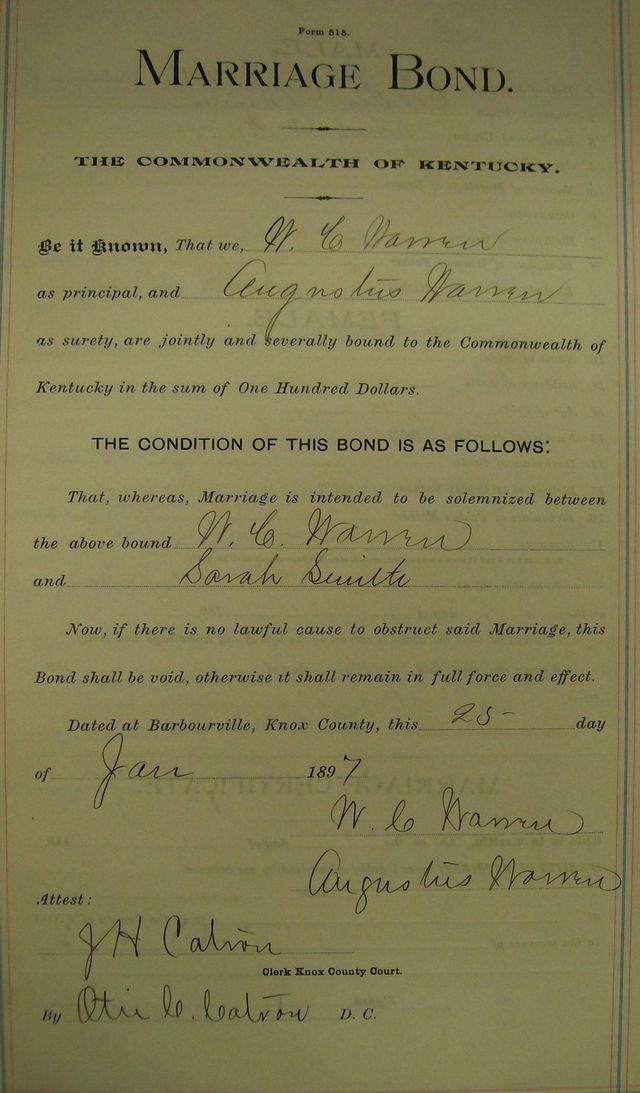 Form 515.
MARRIAGE BOND.
THE COMMONWEALTH OF KENTUCKY.
Be it Known, That we, W. C Warren
as principal, and Augustus Warren
as surety, are jointly and severally bound to the Commonwealth of
Kentucky in the sum of One Hundred Dollars.
THE CONDITION OF THIS BOND IS AS FOLLOWS:
That, whereas, Marriage is intended to be solemnized between
the above bound W. C. Warren
and Sarah Smith
Now, if there is no lawful cause to obstruct said Marriage, this
Bond shall be void, otherwise it shall remain in full force and effect.
Dated at Barbourville, Knox County, this 25- day
of Jan 1897
W. C Warren
Augustus Warren
Attest:
J H Catron
Clerk Knox County Court.
By C. Catron D. C.